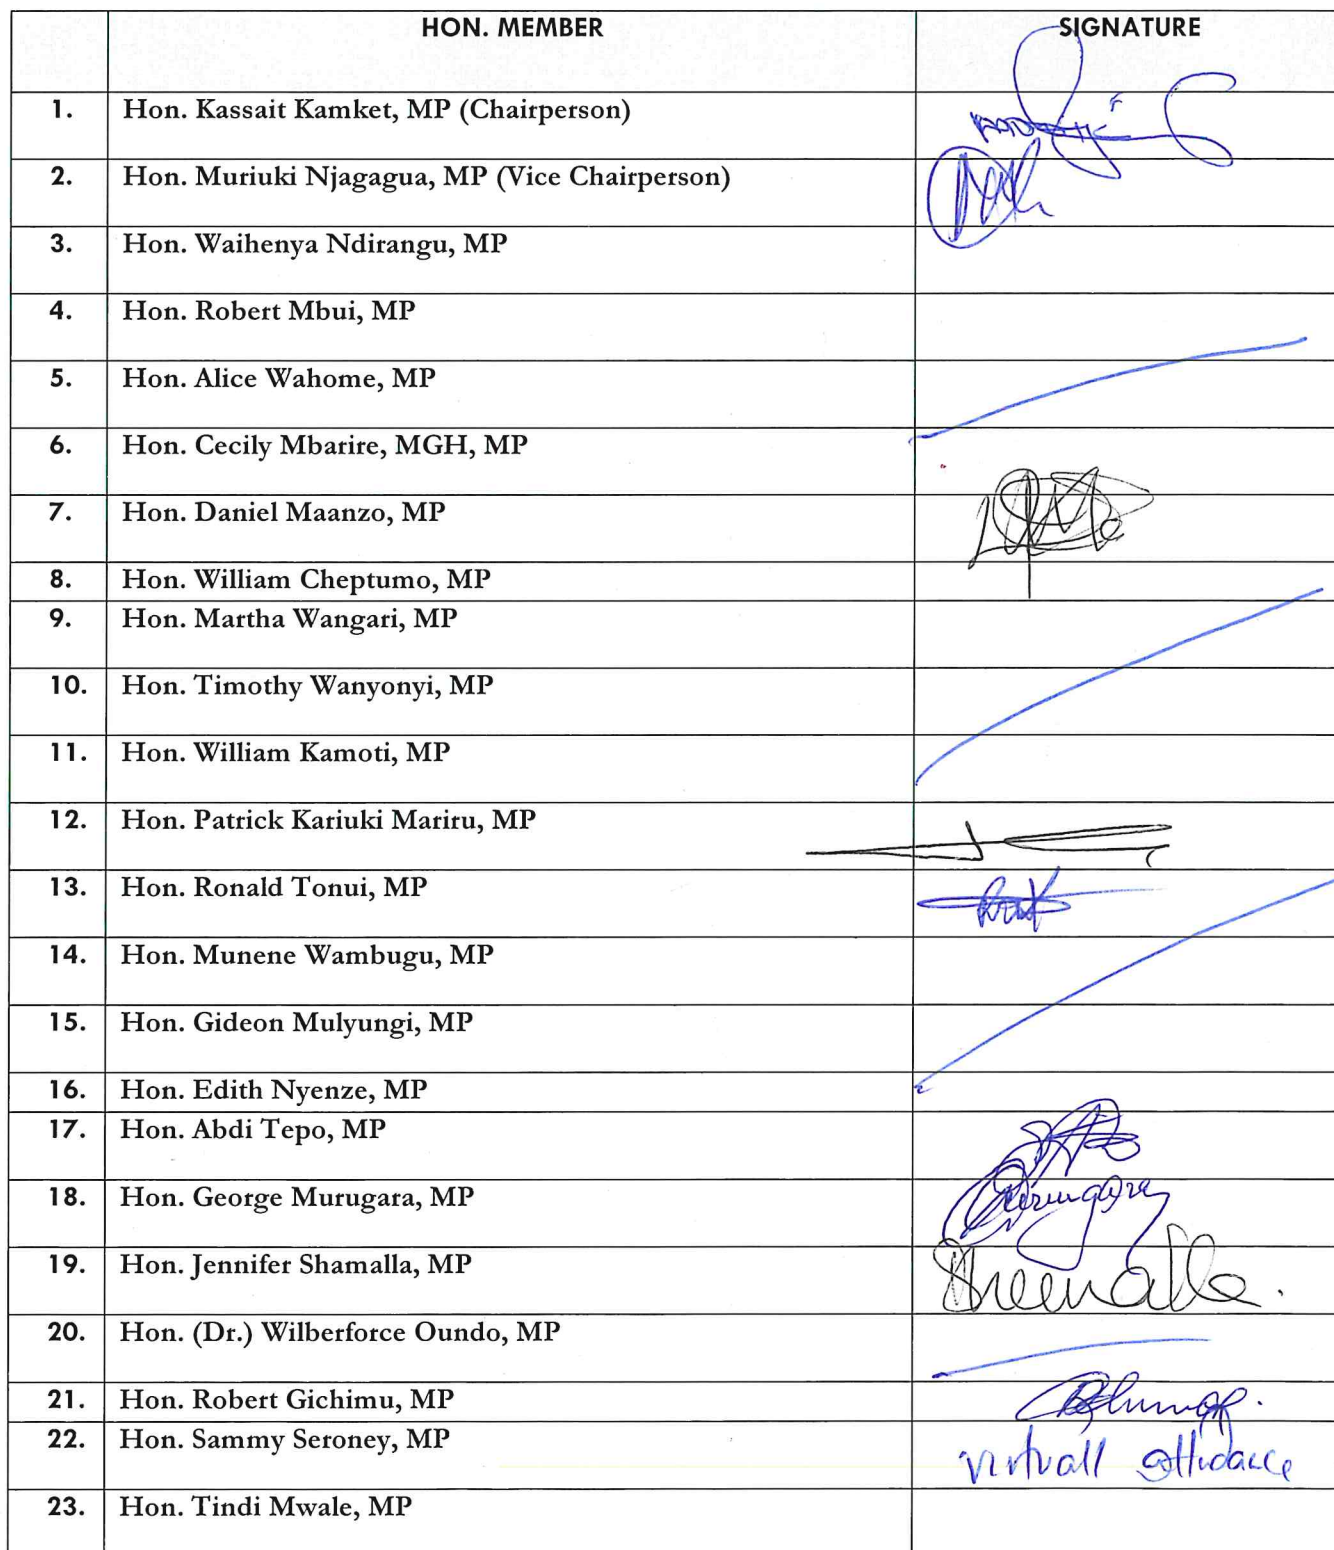 HON. MEMBER SIGNATURE
1. Hon. Kassait Kamket, MP (Chairperson)
2. Hon. Muriuki Njagagua, MP (Vice Chairperson)
3. Hon. Waihenya Ndirangu, MP
4. Hon. Robert Mbui, MP
5. Hon. Alice Wahome, MP
6. Hon. Cecily Mbarire, MGH, MP
7. Hon. Daniel Maanzo, MP
8. Hon. William Cheptumo, MP
9. Hon. Martha Wangari, MP
10. Hon. Timothy Wanyonyi, MP
11. Hon. William Kamoti, MP
12. Hon. Patrick Kariuki Mariru, MP
13. Hon. Ronald Tonui, MP
14. Hon. Munene Wambugu, MP
15. Hon. Gideon Mulyungi, MP
16. Hon. Edith Nyenze, MP
17. Hon. Abdi Tepo, MP
18. Hon. George Murugara, MP
19. Hon. Jennifer Shamalla, MP
20. Hon. (Dr.) Wilberforce Oundo, MP
21. Hon. Robert Gichimu, MP
22. Hon. Sammy Seroney, MP virtuall attudance
23. Hon. Tindi Mwale, MP